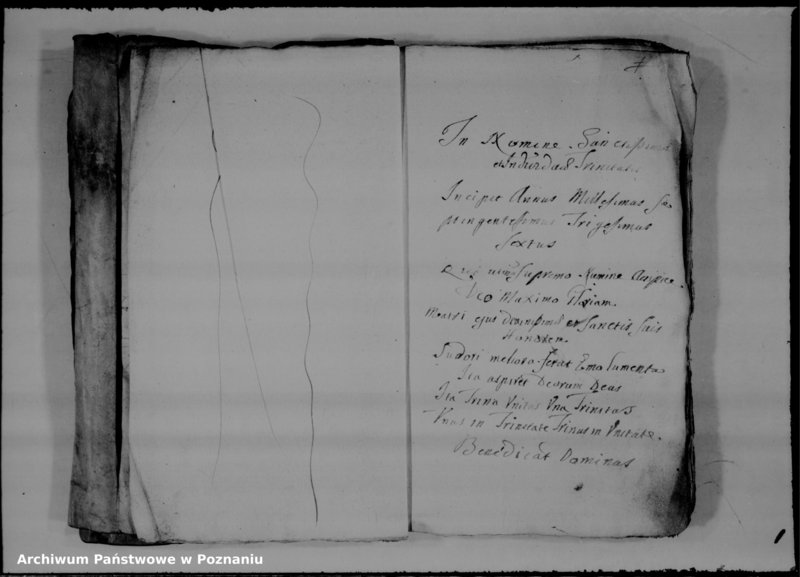 In Nomine Sanctissima
et Individuæ Trinitatis
Incipit Annus Millesimus Se
ptingentesimus Trigesimus
Sextus
Supremo Numine Auspice
Deo Maximo Gloriam
Matri ejus et Sanctis suis
Honorem
Sudori meliora ferat Emolumenta
Ita aspiret Deorum Deus
Ita Trina Unitas Una Trinitas
Unus in Trinitate Trinus in Unitate
Benedicat Dominus
Archiwum Państwowe w Poznaniu